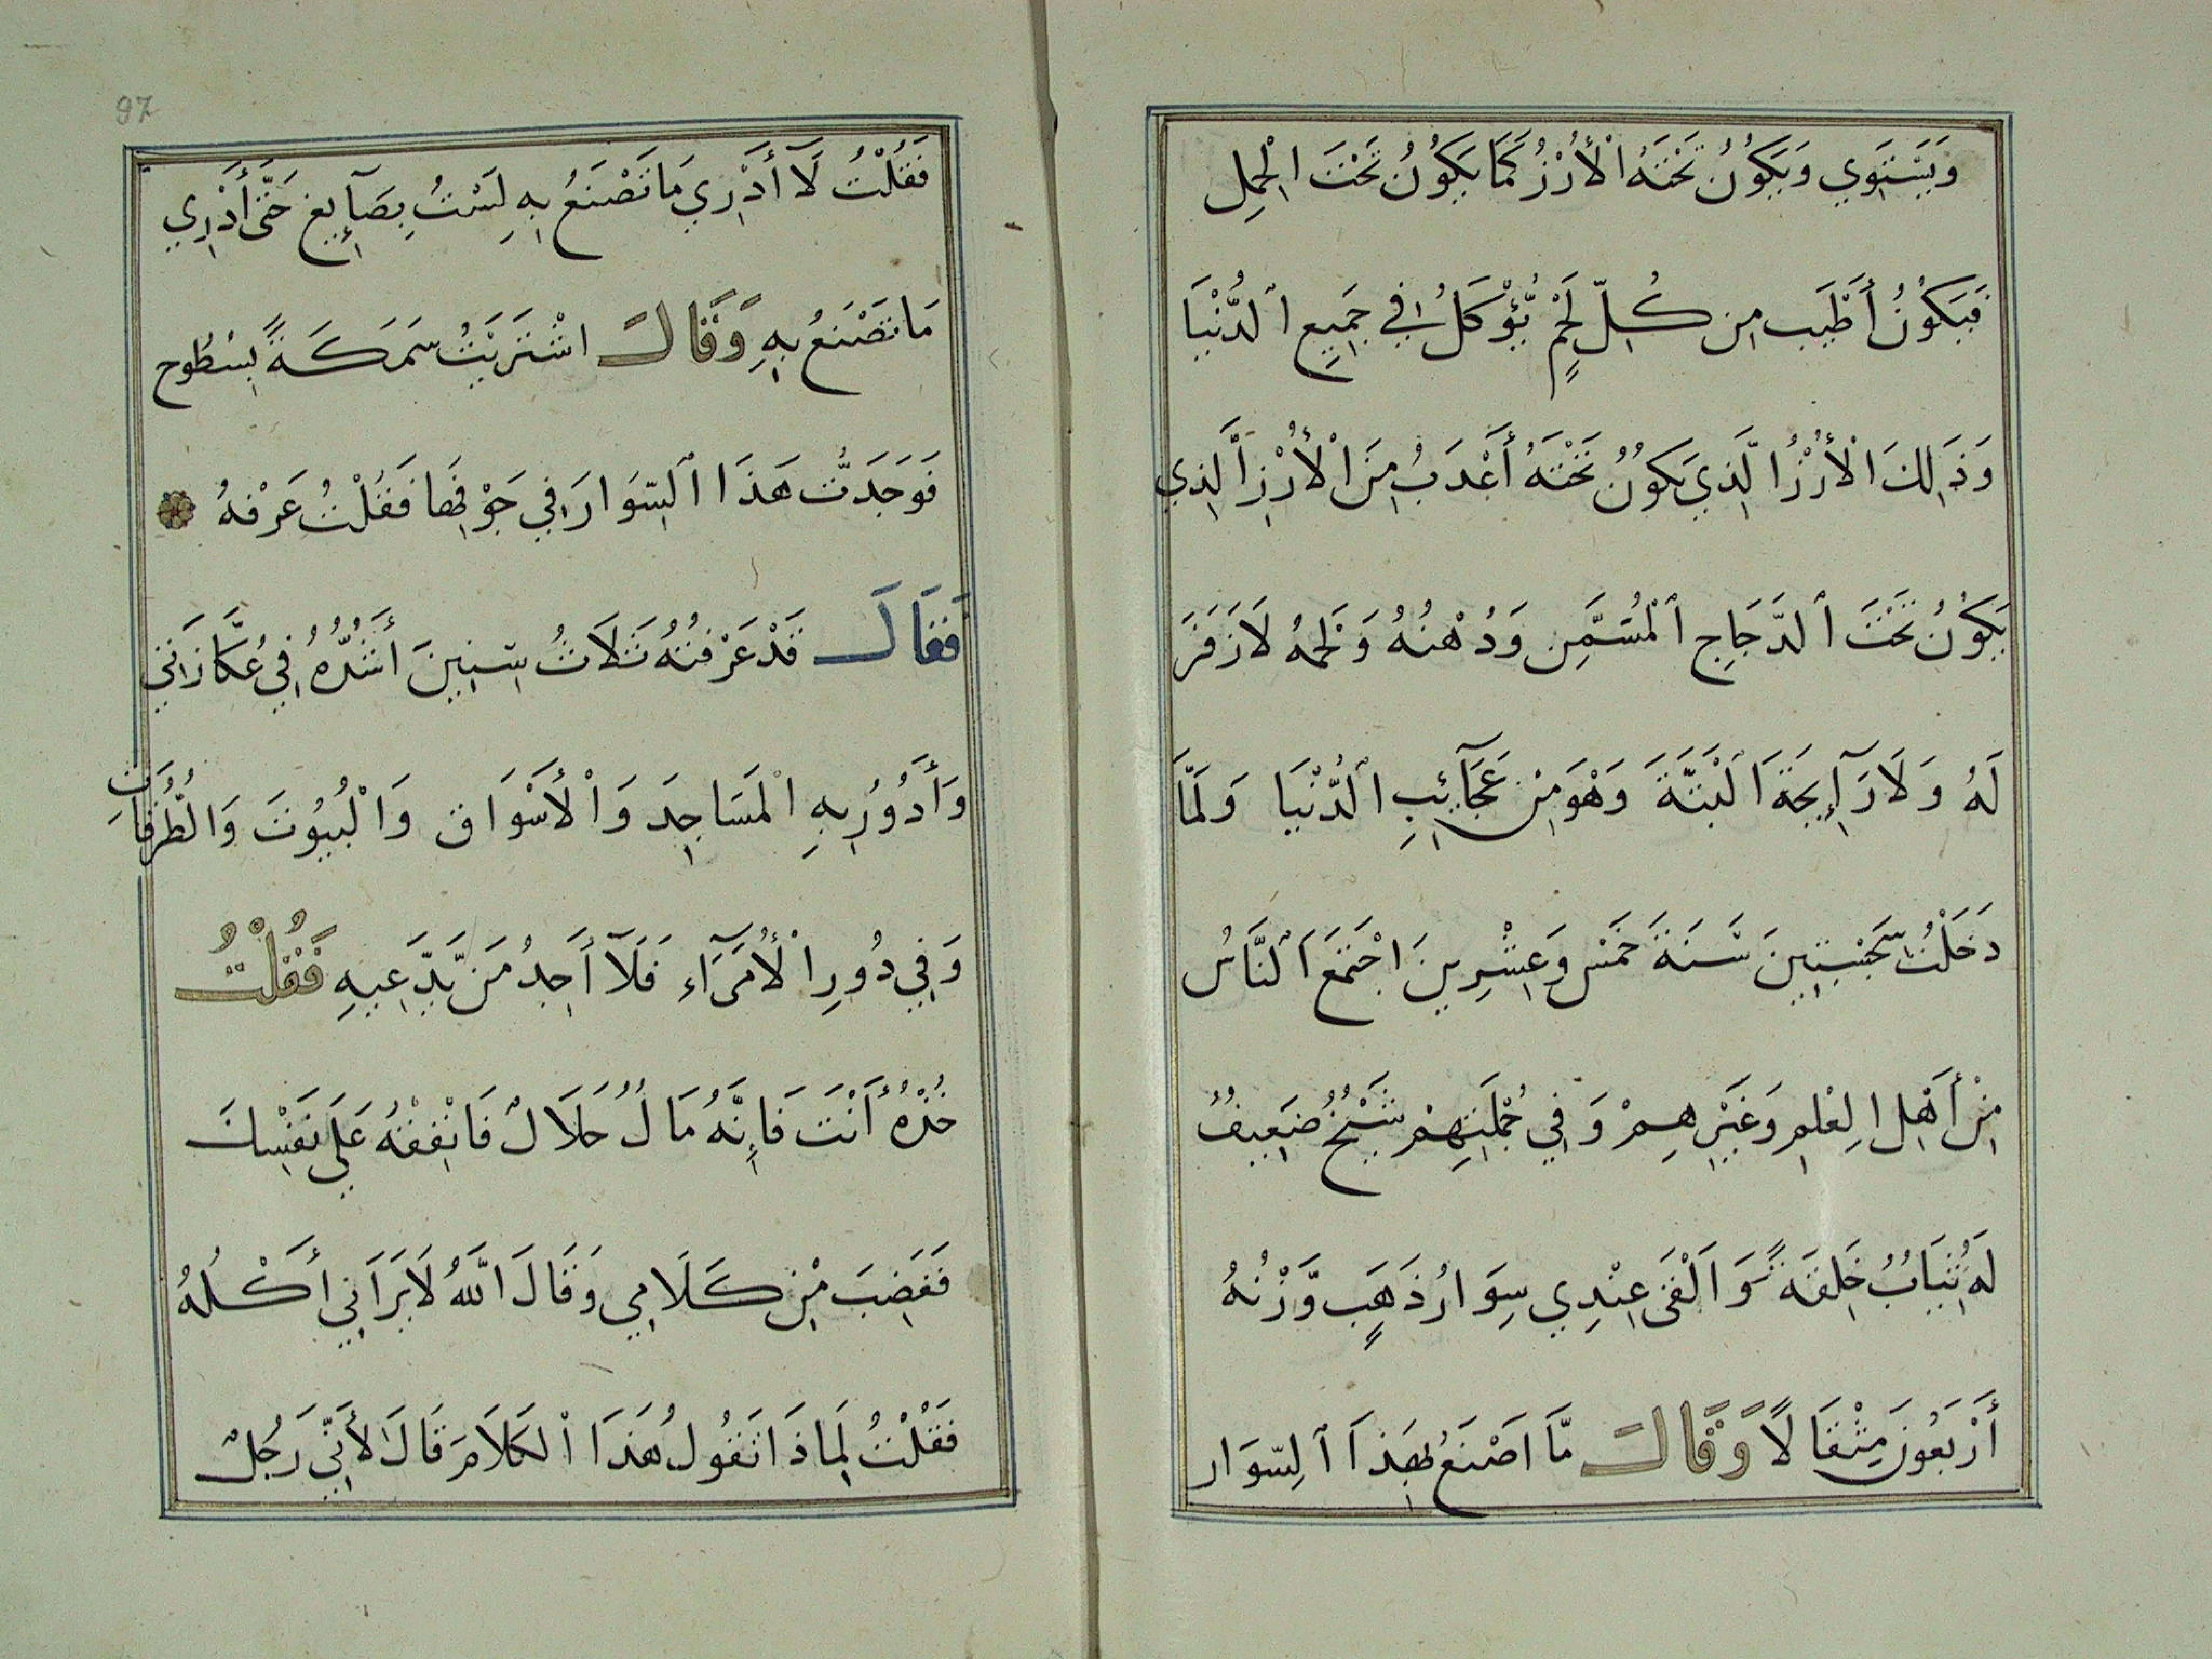 وَيَسْتَوِي وَيَكُوْنُ تَحْتَهُ الْأُرْزُ كَمَا يَكُوْنُ تَحْتَ الْحَمِل
فَيَكُوْنُ أَطْيَب مِن كُلِّ لَحْمٍ يُؤْكَلُ فِي جَمِيعِ الدُّنْيَا
وَذَلِكَ الْأُرْزُ الَّذِي يَكُوْنُ تَحْتَهُ أَعْدَبُ مِنَ الْأُرْزِ الَّذِي
يَكُوْنُ تَحْتَ الدَّجَاجِ الْمُسَمَّنِ وَدُهْنُهُ وَلَحْمُهُ لَا زَفَرَ
لَهُ وَلَا رَآئِحَةَ الْبَتَّةَ وَهْوَ مِنْ عَجَآئِبِ الدُّنْيَا وَلَمَّا
دَخَلْتُ سَجْسِتِينَ سَنَةَ خَمْسٍ وَعِشْرِينَ اجْتَمَعَ النَّاسُ
مِنْ أَهْلِ الْعِلْمِ وَغَيْرِهِمْ وَفِي جُمْلَتِهِمْ شَيْخٌ ضَعِيفٌ
لَهُ ثِيَابٌ خَلِقَةً وَالْقَى عِنْدِي سِوَارُ ذَهَبٍ وَّزْنُهُ
أَرْبَعُونَ مِثْقَالًا وَقَالَ مَّا اصْنَعُ بِهَذَا السِّوَار
97
فَقُلْتُ لَآ أَدْرِي مَا تَصْنَعُ بِهِ لَسْتُ بِصَآئِغ حَتَّى أَدْرِي
مَا تَصْنَعُ بِهِ وَقَالَ اشْتَرَيْتُ سَمَكَةً بِسُطُوح
فَوَجَدتُّ هَذَا السِّوَارَ فِي جَوْفِهَا فَقُلْتُ عَرْفِهُ
فَقَالَ قَدْ عَرْفْتُهُ ثَلَاثُ سِّنِينَ أَشُدُّهُ فِي عُكَّازَتِي
وَأَدُوْرُ بِهِ الْمَسَاجِدَ وَالْأَسْوَاق وَالْبُيُوْتَ وَالْطُّرُقَاتِ
وَفِي دُورِ الْأُمَرَآءِ فَلَآ أَجِدُ مَن يَّدَّعِيهِ فَقُلْتُ
خُذْهُ أَنْتَ فَإِنَّهُ مَالٌ حَلَالٌ فَانْفِقْهُ عَلَى نَفْسِكَ
فَغَضِبَ مِنْ كَلَامِي وَقَالَ اللَّهُ لَا يَرَانِي أَكْلُهُ
فَقُلْتُ لِمَاذَا تَقُولُ هَذَا الْكَلَامَ قَالَ لأَنِّي رَجُلٌ